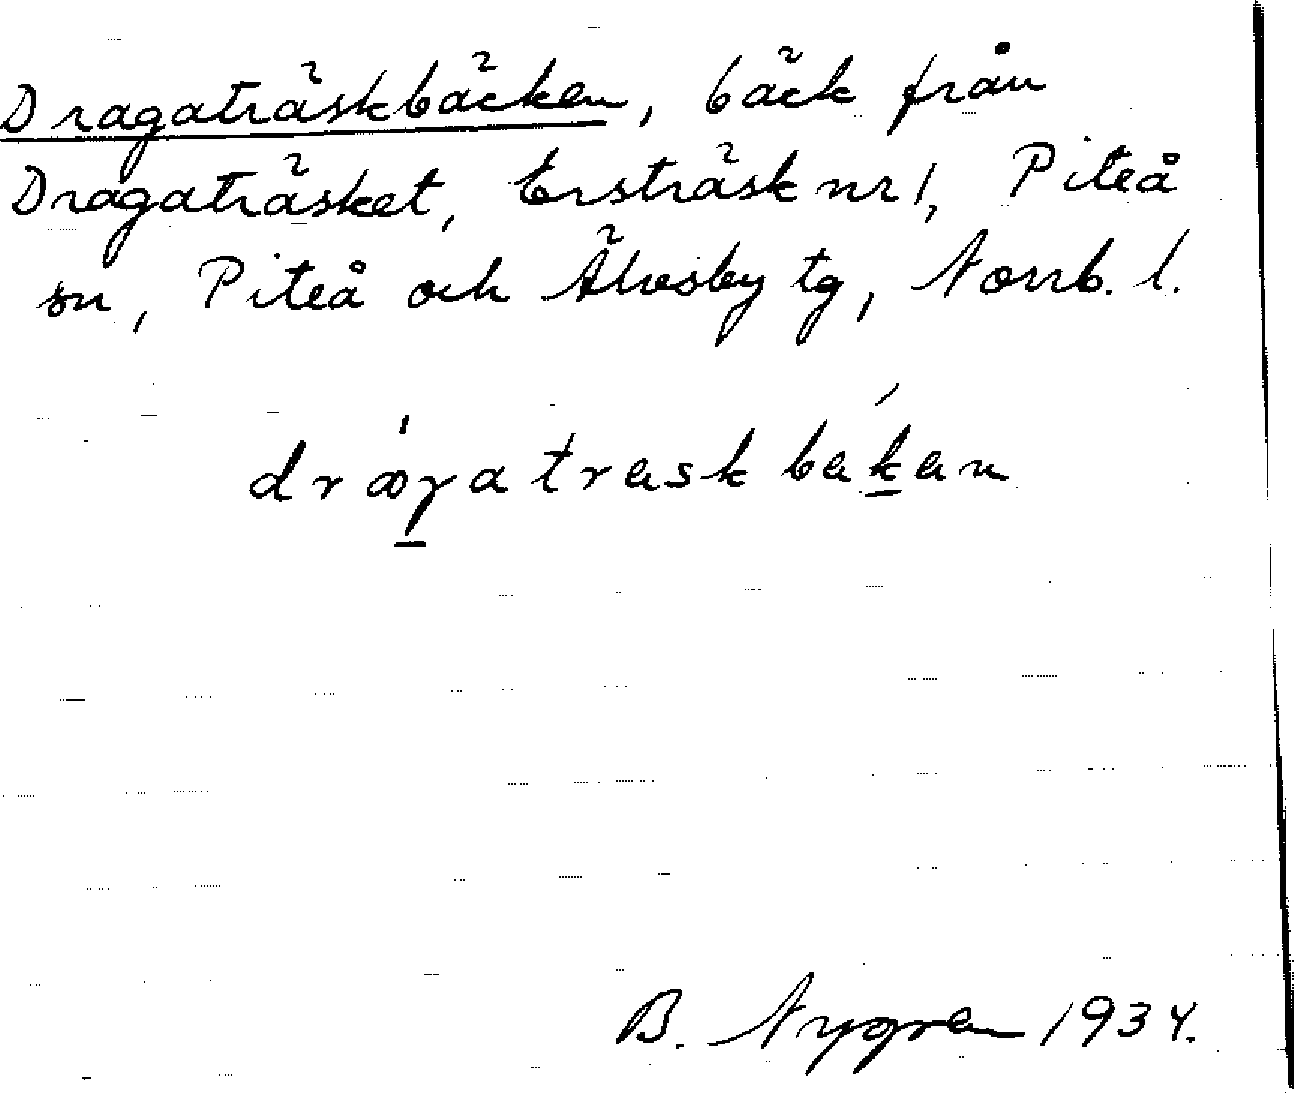 Dragaträskbäcken, bäck från
Dragaträsket, Ersträsk nr 1, Piteå
sn, Piteå och Älvsby tg, Norrb. l.
drαγatraskbakan
B. Nygren 1934.